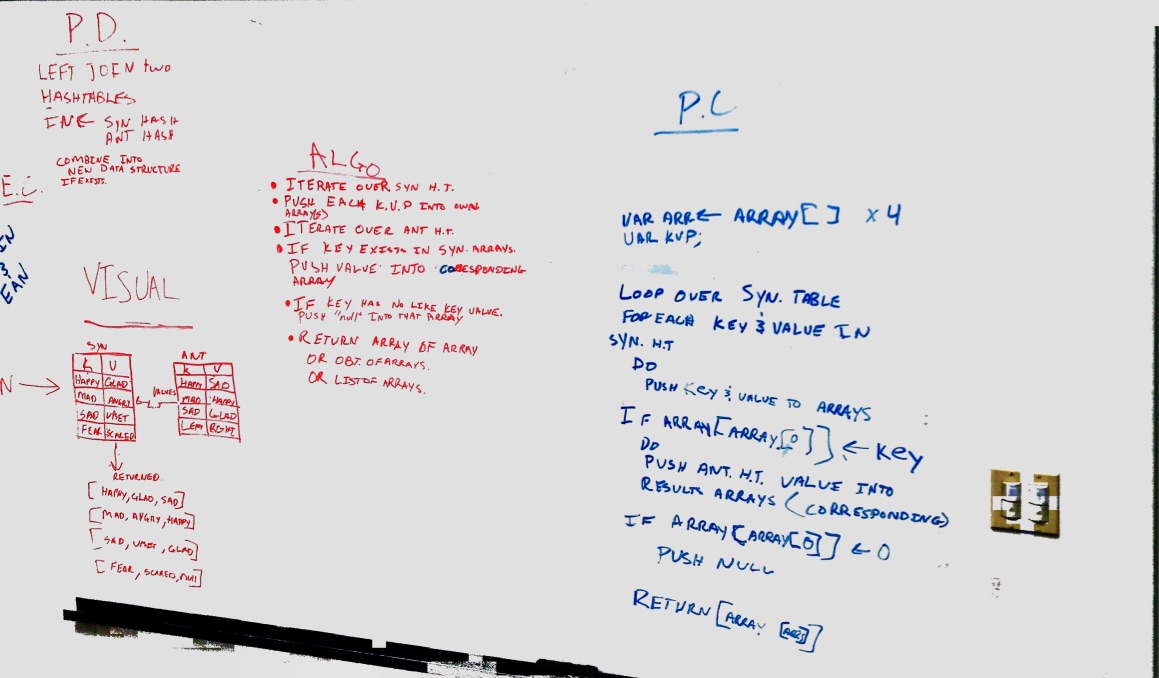 P.D.
LEFT JOIN two
HASHTABLES
IN ← SYN HASH
ANT HASH
COMBINE INTO
NEW DATA STRUCTURE
IF EXISTS.
E.C.
IN
&
EAN
VISUAL
SYN
K V
HAPPY GLAD
MAD ANGRY
SAD UPSET
FEAR SCARED
ANT
K V
HAPPY SAD
MAD HAPPY
SAD GLAD
LEFT RGHT
VALUES
N →
RETURNED
[HAPPY, GLAD, SAD]
[MAD, ANGRY, HAPPY]
[SAD, UPSET, GLAD]
[FEAR, SCARED, null]
ALGO
• ITERATE OVER SYN H.T.
• PUSH EACH K.V.P INTO OWN
ARRAY(S)
• ITERATE OVER ANT H.T.
• IF KEY EXISTS IN SYN. ARRAYS.
PUSH VALUE INTO CORRESPONDING
ARRAY
• IF KEY HAS NO LIKE KEY VALUE.
PUSH "null" INTO THAT ARRAY
• RETURN ARRAY OF ARRAY
OR OBJ. OF ARRAYS.
OR LIST OF ARRAYS.
P.C
VAR ARR ← ARRAY[] x4
VAR KVP;
LOOP OVER SYN. TABLE
FOR EACH KEY & VALUE IN
SYN. H.T
DO
PUSH KEY & VALUE TO ARRAYS
IF ARRAY[ARRAY[0]] ← KEY
DO
PUSH ANT. H.T. VALUE INTO
RESULTS ARRAYS (CORRESPONDING)
IF ARRAY[ARRAY[0]] ← 0
PUSH NULL
RETURN [ARRAY [ARRS]]